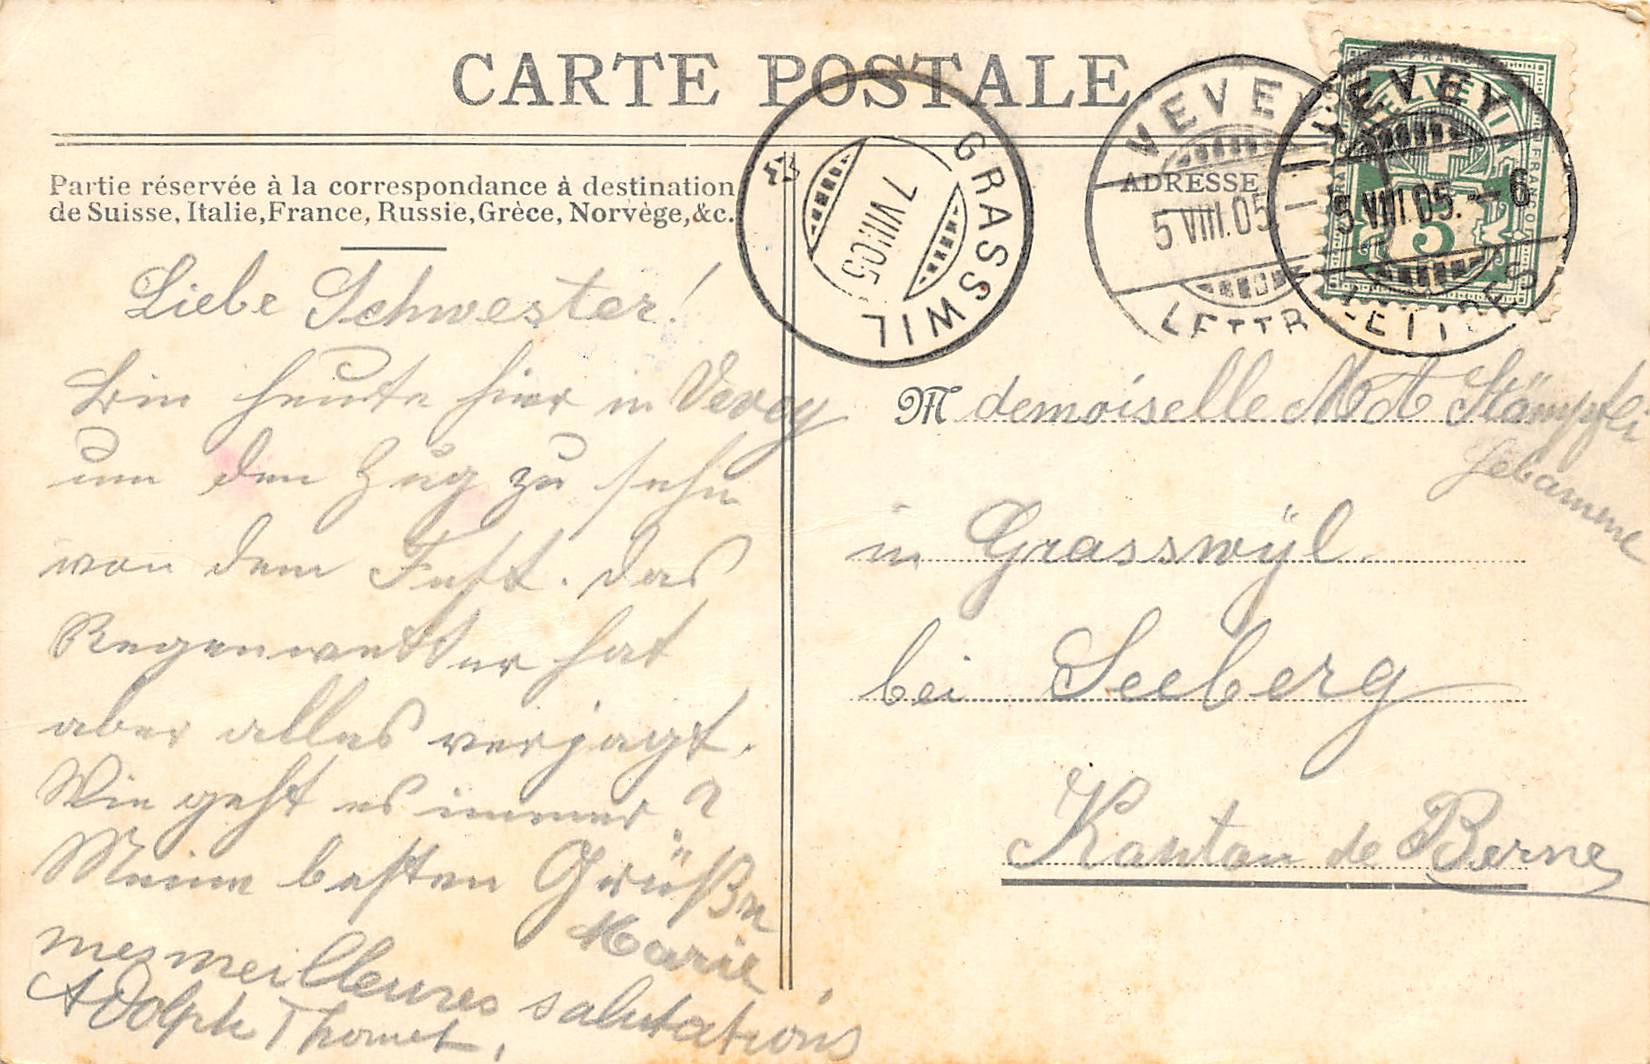 CARTE POSTALE
Partie réservée à la correspondance à destination
de Suisse, Italie, France, Russie, Grèce, Norvège, &c.
ADRESSE
GRASSWIL
7 VIII 05
VEVEY
5 VIII. 05
LETTR
VEVEY
5 VIII. 05. – 6
LETTRES
5
Liebe Schwester!
Bin heute hier in Vevey
um den Zug zu sehn
von dem Fest. Das
Regenwetter hat
aber alles verjagt.
Wie geht es immer?
Meine besten Grüße
Marie
mes meilleures salutations
Adolph Thomet.
Mdemoiselle M A Stämpfli
Hebamme
in Grasswÿl
bei Seeberg
Kanton de Berne